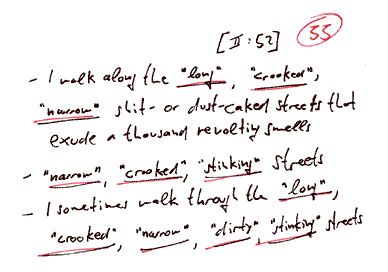 [II:52] 53
- I walk along the "long", "crooked",
"narrow" shit- or dust-caked streets that
exude a thousand revolting smells
- "narrow", "crooked", "stinking" streets
- I sometimes walk through the "long",
"crooked", "narrow", "dirty", "stinking" streets